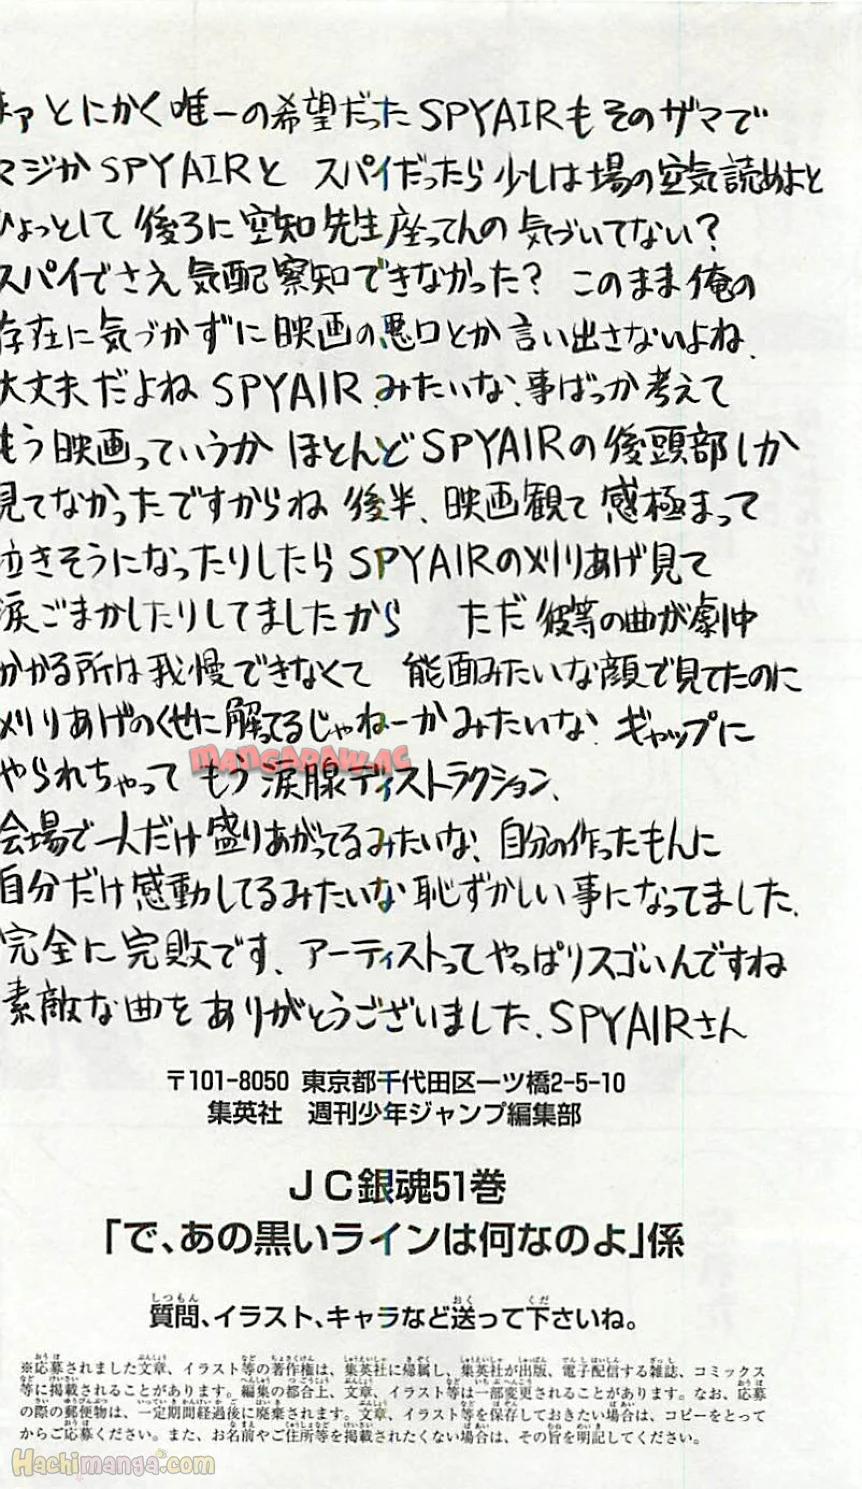 まァとにかく唯一の希望だったSPYAIRもそのザマで
マジかSPYAIRと スパイだったら少しは場の空気読めよと
ひょっとして 後ろに空知先生座ってんの気づいてない?
スパイでさえ気配察知できなかった? このまま俺の
存在に気づかずに映画の悪口とか言い出さないよね、
大丈夫だよねSPYAIR、みたいな、事ばっか考えて
もう映画っていうか ほとんどSPYAIRの後頭部しか
見てなかったですからね 後半、映画観て感極まって
泣きそうになったりしたらSPYAIRの刈りあげ見て
涙ごまかしたりしてましたから ただ彼等の曲が劇中
かかる所は我慢できなくて 能面みたいな顔で見てたのに
刈りあげのくせに解ってるじゃねーかみたいな、ギャップに
やられちゃって もう涙腺ディストラクション、
会場で一人だけ盛りあがってるみたいな、自分の作ったもんに
自分だけ感動してるみたいな恥ずかしい事になってました、
完全に完敗です、アーティストってやっぱりスゴいんですね
素敵な曲をありがとうございました、SPYAIRさん
MANGARAW.AC
〒101-8050 東京都千代田区一ツ橋2-5-10
集英社 週刊少年ジャンプ編集部
JC銀魂51巻
「で、あの黒いラインは何なのよ」係
質問、イラスト、キャラなど送って下さいね。
※応募されました文章、イラスト等の著作権は、集英社に帰属し、集英社が出版、電子配信する雑誌、コミックス
等に掲載されることがあります。編集の都合上、文章、イラスト等は一部変更されることがあります。なお、応募
の際の郵便物は、一定期間経過後に廃棄されます。文章、イラスト等を保存しておきたい場合は、コピーをとって
からご応募ください。また、お名前やご住所等を掲載されたくない場合は、その旨を明記してください。
Hachimanga.com